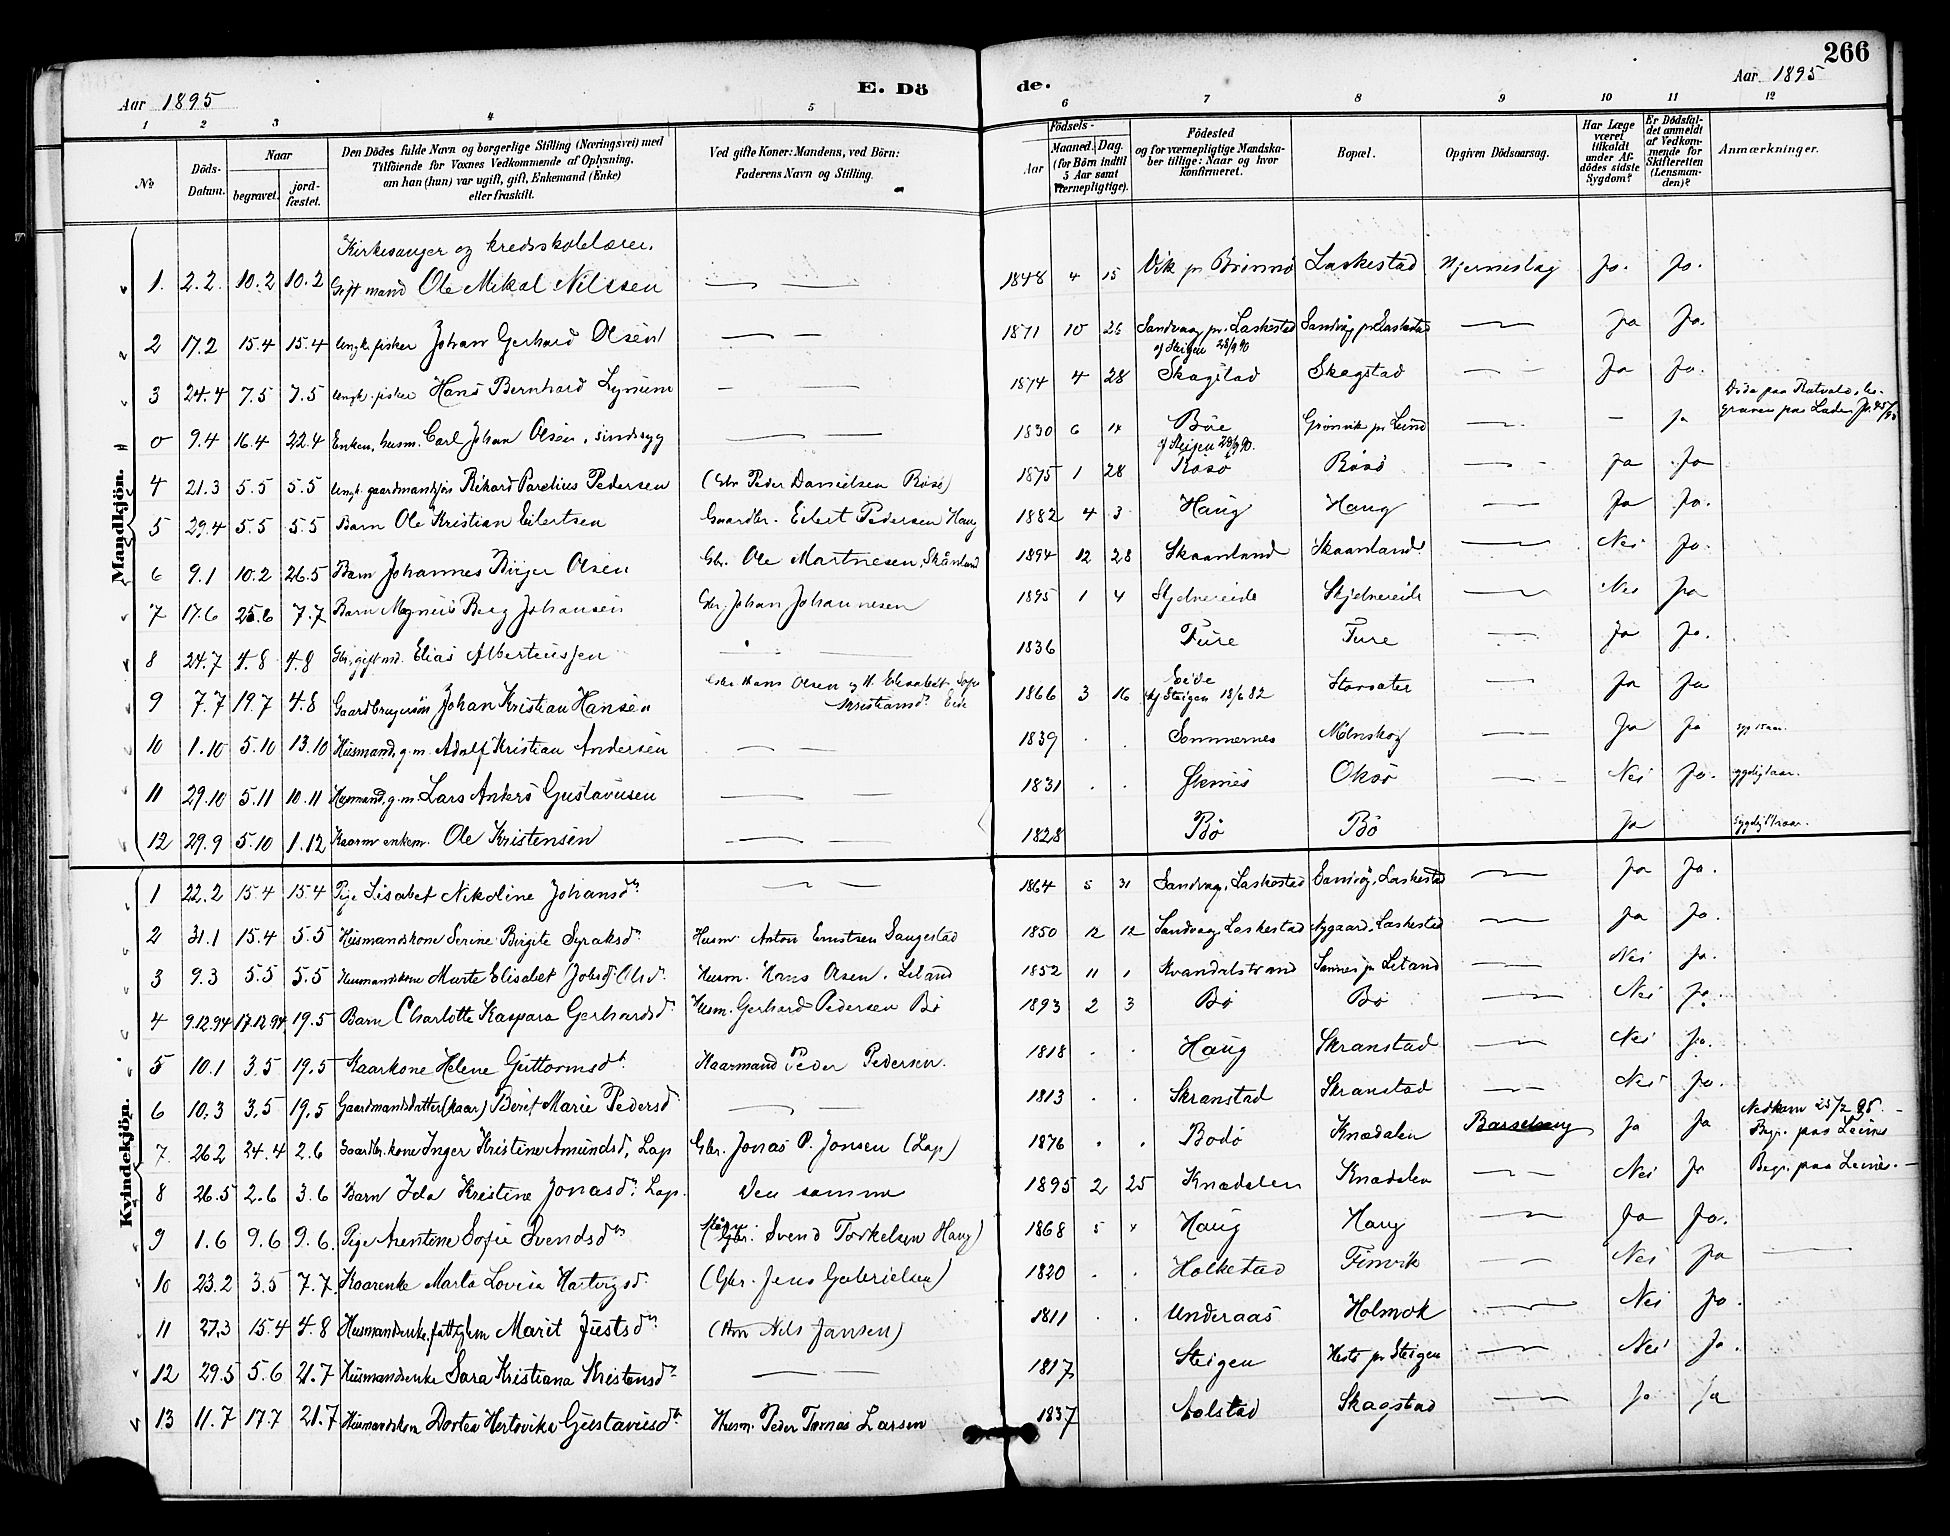 266
Aar 1895
E. Dö
de.
Aar 1895
1 2 3 4 5 6 7 8 9 10 11 12
№
Döds-Datum.
Naar
begravet.
jord-fæstet.
Den Dödes fulde Navn og borgerlige Stilling (Næringsvei) med
Tilföiende for Voxnes Vedkommende af Oplysning,
om han (hun) var ugift, gift, Enkemand (Enke)
eller fraskilt.
Ved gifte Koner: Mandens, ved Börn:
Faderens Navn og Stilling.
Födsels-
Aar
Maaned. Dag.
(for Börn indtil
5 Aar samt
Værnepligtige).
Födested
og for værnepligtige Mandska-
ber tillige: Naar og hvor
konfirmeret.
Bopæl.
Opgiven Dödsaarsag.
Har Læge
været
tilkaldt
under Af-
dödes sidste
Sygdom?
Er Dödsfal-
det anmeldt
af Vedkom-
mende for
Skifteretten
(Lensman-
den)?
Anmærkninger.
Mandkjön.
Kirkesanger og kredsskolelærer.
1. 2.2. 10.2 10.2 Gift mand Ole Mikal Nilssen 1848 4 15 Vik pr Brönnö Laskestad Hjerneslag Ja. Ja.
2 17.2 15.4 15.4 Ungk. fisker Johan Gerhard Olsen 1871 10 26 Sandvaag pr. Laskestad Sandvåg pr Laskestad Ja Ja.
cf Steigen 28/9 90
3 24.4 7.5 7.5 Ungk. fisker Hans Bernhard Lynum 1874 4 28 Skagstad Skagstad Ja Ja.
0 9.4 16.4 22.4 Enkem. husm. Carl Johan Olsen, sindssyg 1830 6 14 Böe Grönvik pr Leines – ja
cf Steigen 28/9 90.
4 21.3 5.5 5.5 Ungk. gaardmandssön Rikard Parelius Pedersen (Gbr Peder Danielsen Rösö) 1875 1 28 Rösö Rösö Ja Ja
5 29.4 5.5 5.5 Barn Ole Kristian Eilertsen Gaardbr. Eilert Pedersen Haug 1882 4 3 Haug Haug Ja Ja.
6 9.1 10.2 26.5 Barn Johannes Birger Olsen Gbr. Ole Martinesen, Skånland 1894 12 28 Skaanland Skaanland Nei Ja.
7 17.6 25.6 7.7 Barn Magnus Berg Johansen Gbr. Johan Johannesen 1895 1 4 Skjelnereide Skjelnereide Nei Ja
8 24.7 4.8 4.8 Gbr, gift md. Elias Alberteussen 1836 Fure Fure Ja Ja.
9 7.7 19.7 4.8 Gaardbrugersön Johan Kristian Hansen Gbr. Hans Olsen og H. Elisabet Sofie Kristiansd. Eide 1866 3 16 Eide Storsæter Ja Ja
cf Steigen 18/6 82
10 1.10 5.10 13.10 Husmand, g.m. Adolf Kristian Andersen 1839 . . Sommernes Mölnskog Ja Ja
11 29.10 5.11 10.11 Husmand, g.m. Lars Ankers Gustavusen 1831 . . Stenes Oksö Nei Ja.
12 29.9 5.10 1.12 Kaarm enkem. Ole Kristensen 1828 Bö Bö Ja
Kvindekjön.
1 22.2 15.4 15.4 Pige Lisabet Nikoline Johansdtr 1864 5 31 Sandvag, Laskestad Sandvåg, Laskestad Ja Ja.
2 31.1 15.4 5.5 Husmandskone Serine Birgite Syraksdr. Husm. Anton Ernstsen Saugestad 1850 12 12 Sandvag, Laskestad Nygaard, Laskestad Ja Ja.
3 9.3 5.5 5.5 Husmandskone Marte Elisabet Jobsd Olsd. Husm. Hans Olsen. Leland 1852 11 1 Kvandalstrand Sannes pr Leland Nei Ja.
4 9.12.94 17.12.94 19.5 Barn Charlotte Kaspara Gerhardsd. Husm. Gerhard Pedersen Bö 1893 2 3 Bö Bö Nei Ja.
5 10.1 3.5 19.5 Kaarkone Helene Guttormsdtr Kaarmand Peder Pedersen. 1818 . . Haug Skranstad Nei Ja.
6 10.3 3.5 19.5 Gaardmandsdatter (kaar) Berit Marie Pedersd 1813 . . Skranstad Skranstad Nei Ja.
7. 26.2 24.4 2.6 Gaardbr. kone Inger Kristine Amundsd, Lap Gbr. Jonas P. Jonsen (Lap) 1876 . . Bodö Knædalen Barselseng Ja Ja Nedkom 25/2 95. Begr. paa Leines
8 26.5 2.6 3.6 Barn Ida Kristine Jonasd. Lap. Den samme 1895 2 25 Knædalen Knædalen Nei Ja Begr. paa Leines.
9 1.6 9.6 9.6. Pige Arentine Sofie Svendsdtr (Gbr. Svend Torkelsen Haug) 1868 5 4 Haug Haug Ja Ja.
10 23.2 3.5 7.7. Kaarenke Marta Lovisa Hartvigsd. (Gbr. Jens Gabrielsen) 1820 . . Holkestad Finvik Nei Ja
11 27.3 15.4 4.8 Husmandsenke, fattiglem Marit Justsdtr (Nils Jansen) 1811 . . Underaas Holmok Nei Ja.
12 29.5 5.6 21.7 Husmandsenke Sara Kristiana Kristensdr 1817 Steigen Hests pr Steigen Nei Ja.
13 11.7 17.7 21.7 Husmandskone Dortea Hertovika Gustavusdtr Husm. Peder Tomas Larsen 1837 Aalstad Skagstad Ja Ja